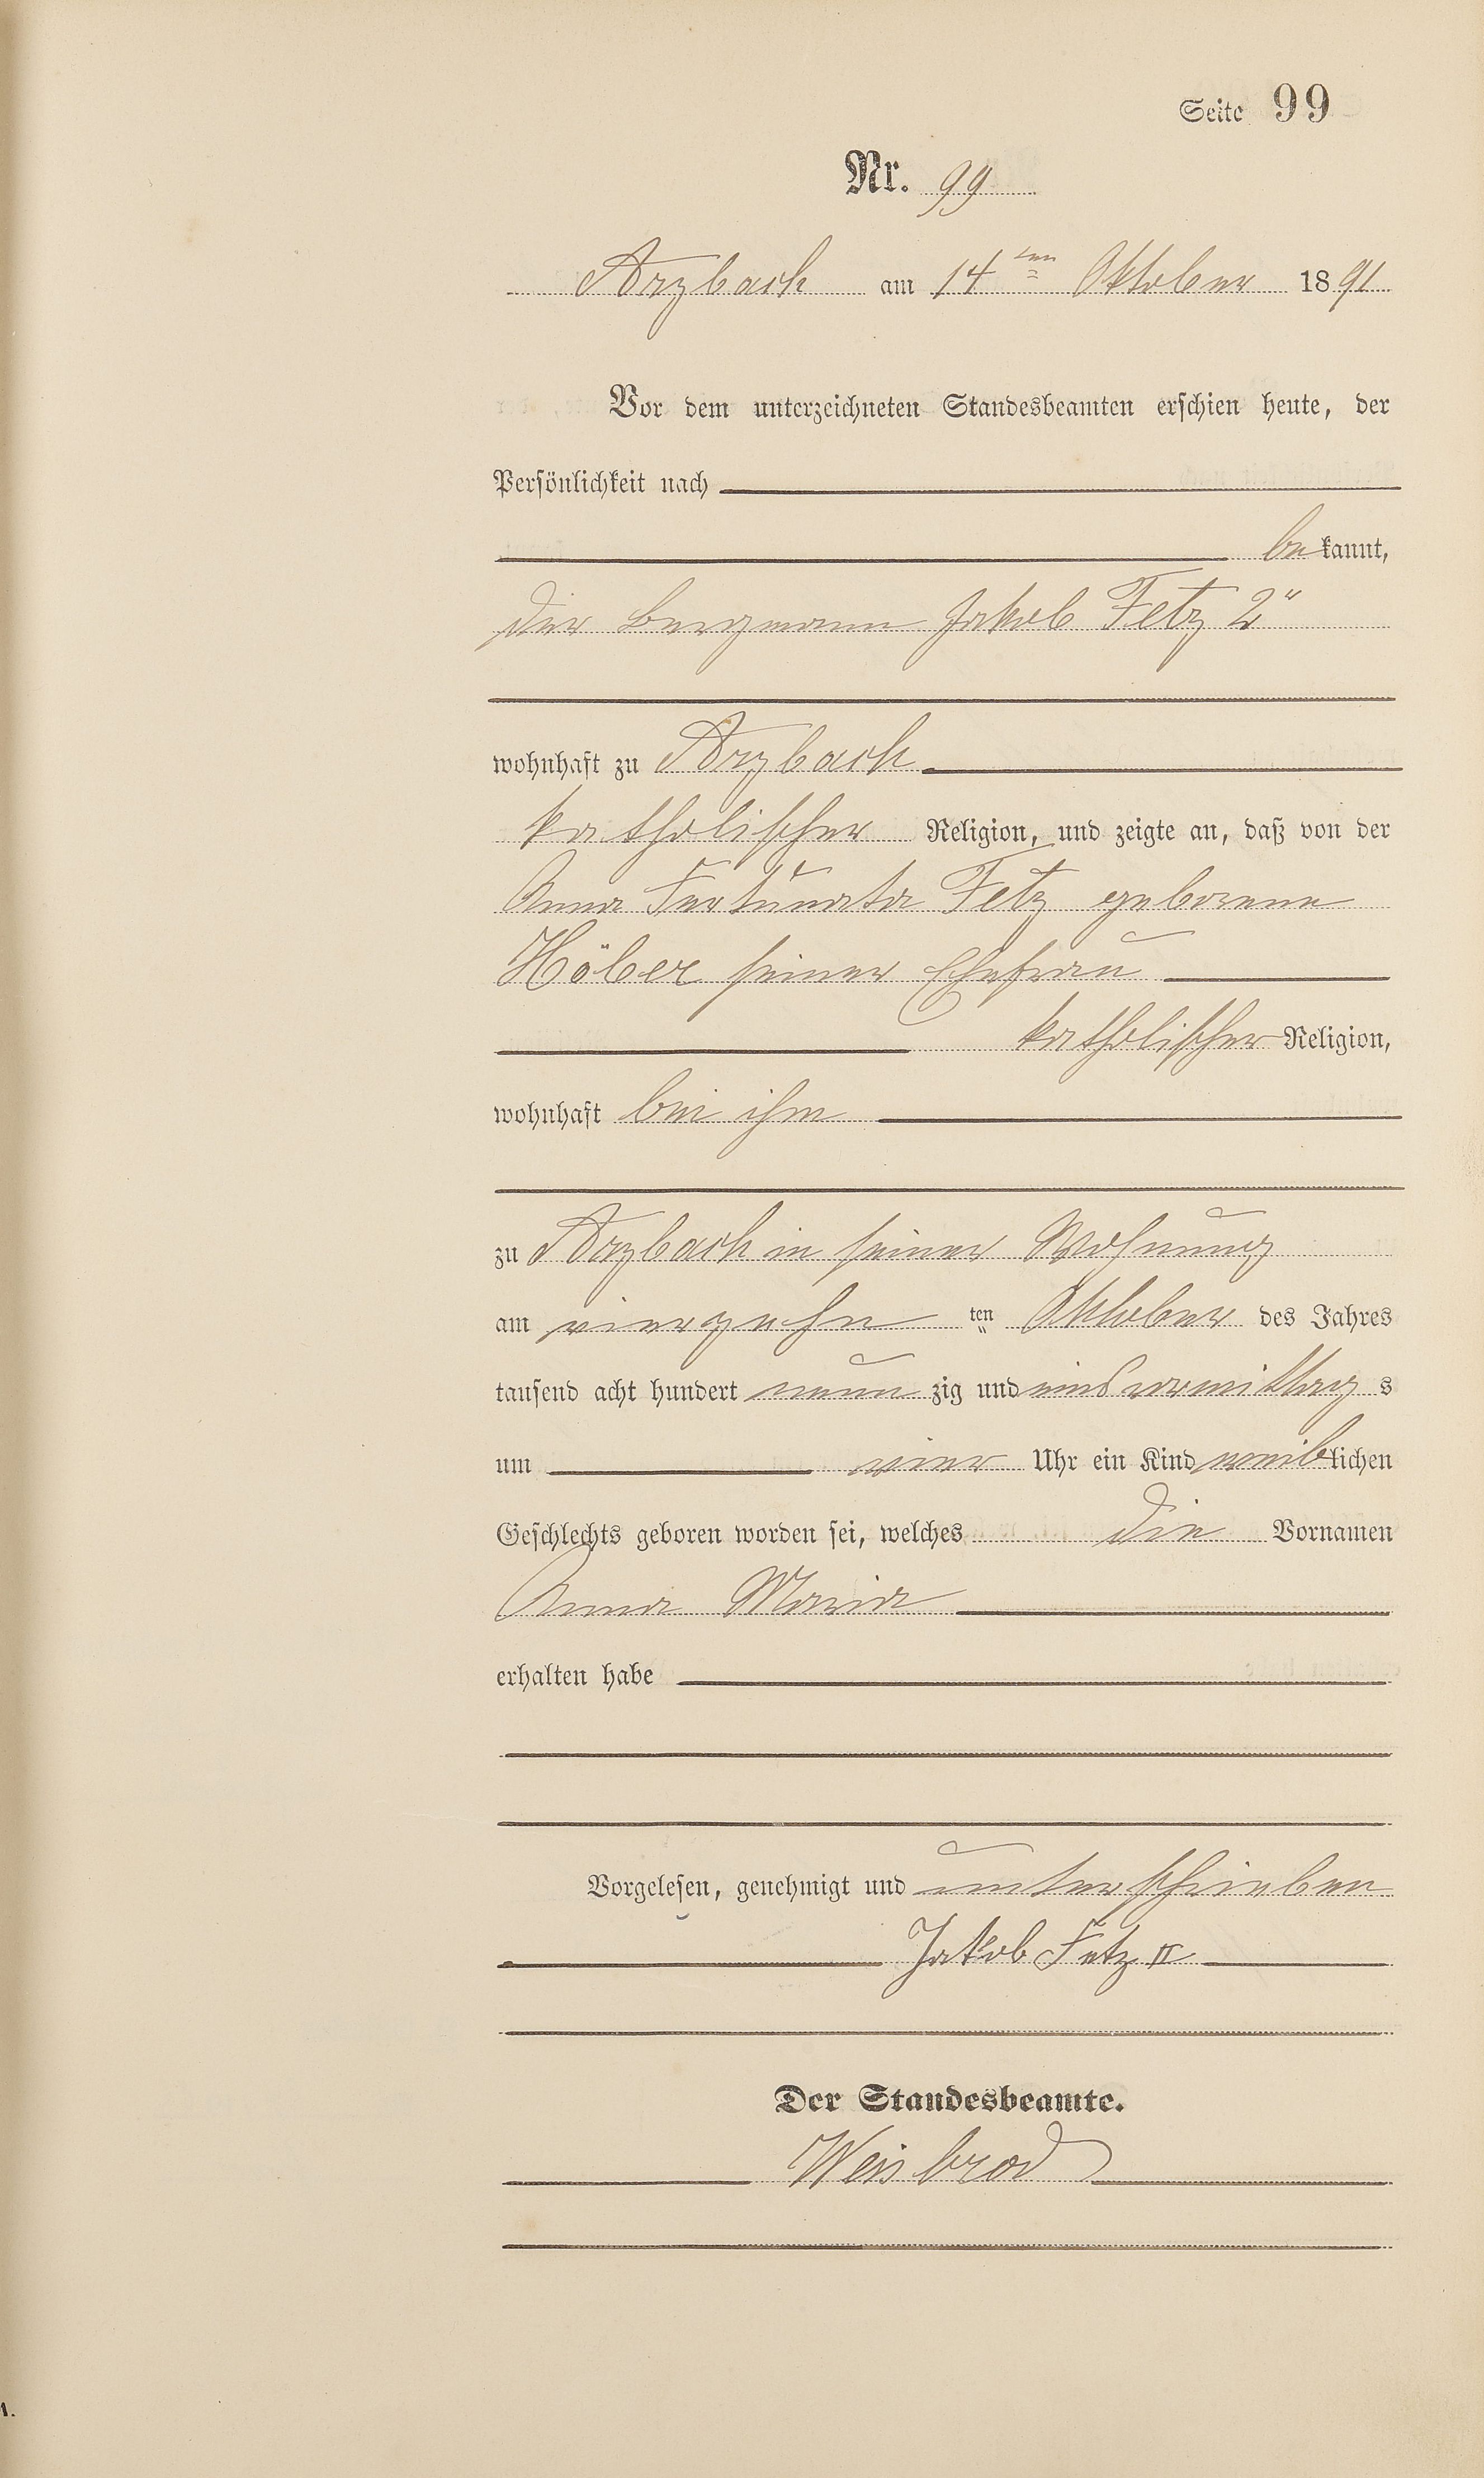 Seite 99
Nr. 99
Arzbach am 14ten Oktober 1891
Vor dem unterzeichneten Standesbeamten erschien heute, der
Persönlichkeit nach
bekannt,
der Bergmann Jakob Fetz 2"
wohnhaft zu Arzbach
katholischer Religion, und zeigte an, daß von der
Anna Fortunata Fetz geborene
Höber seiner Ehefrau
katholischer Religion,
wohnhaft bei ihm
zu Arzbach in seiner Wohnung
am vierzehn ten Oktober des Jahres
tausend acht hundert neun zig und eins vormittag s
um vier Uhr ein Kind weiblichen
Geschlechts geboren worden sei, welches die Vornamen
Anna Maria
erhalten habe
Vorgelesen, genehmigt und unterschrieben
Jakob Fetz II
Der Standesbeamte.
Weisbrod